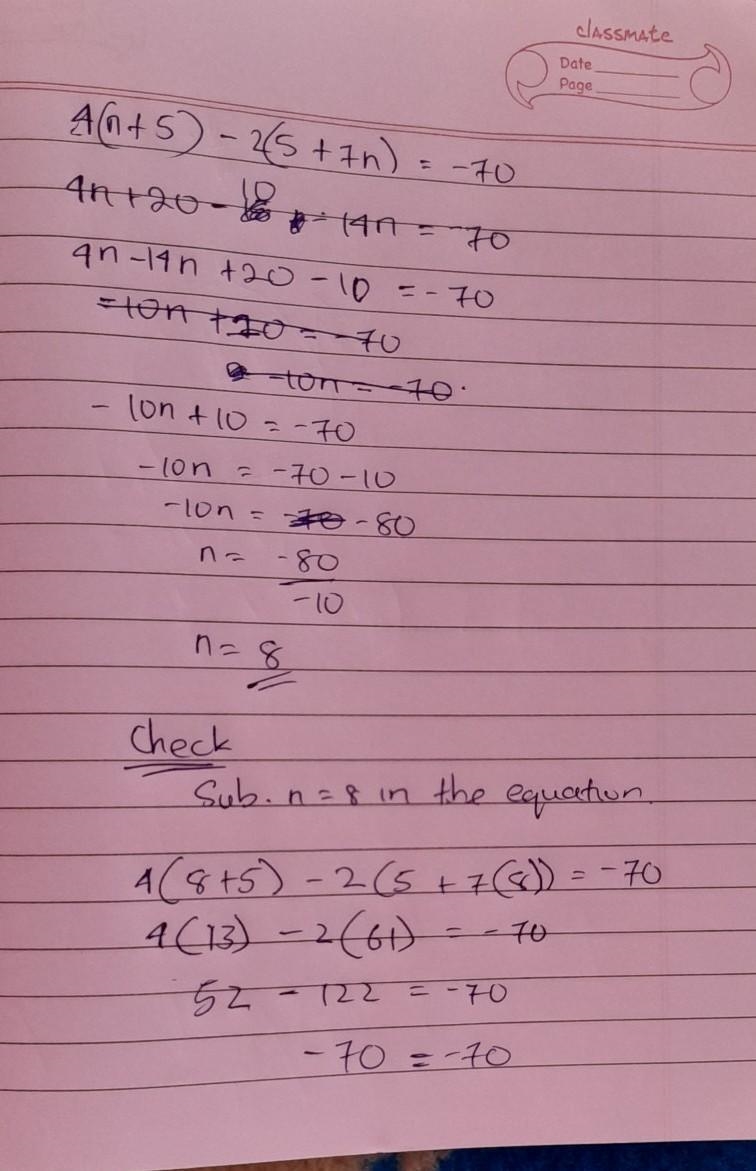 classmate
Date
Page
4(n+5) - 2(5 + 7n) = -70
4n + 20 - 10 - 14n = -70
4n - 14n + 20 - 10 = -70
-10n + 10 = -70
-10n = -70
- 10n + 10 = -70
-10n = -70 - 10
-10n = -70 -80
n = -80
-10
n = 8
Check
Sub. n = 8 in the equation.
4(8+5) - 2(5 + 7(8)) = -70
4(13) - 2(61) = -70
52 - 122 = -70
-70 = -70